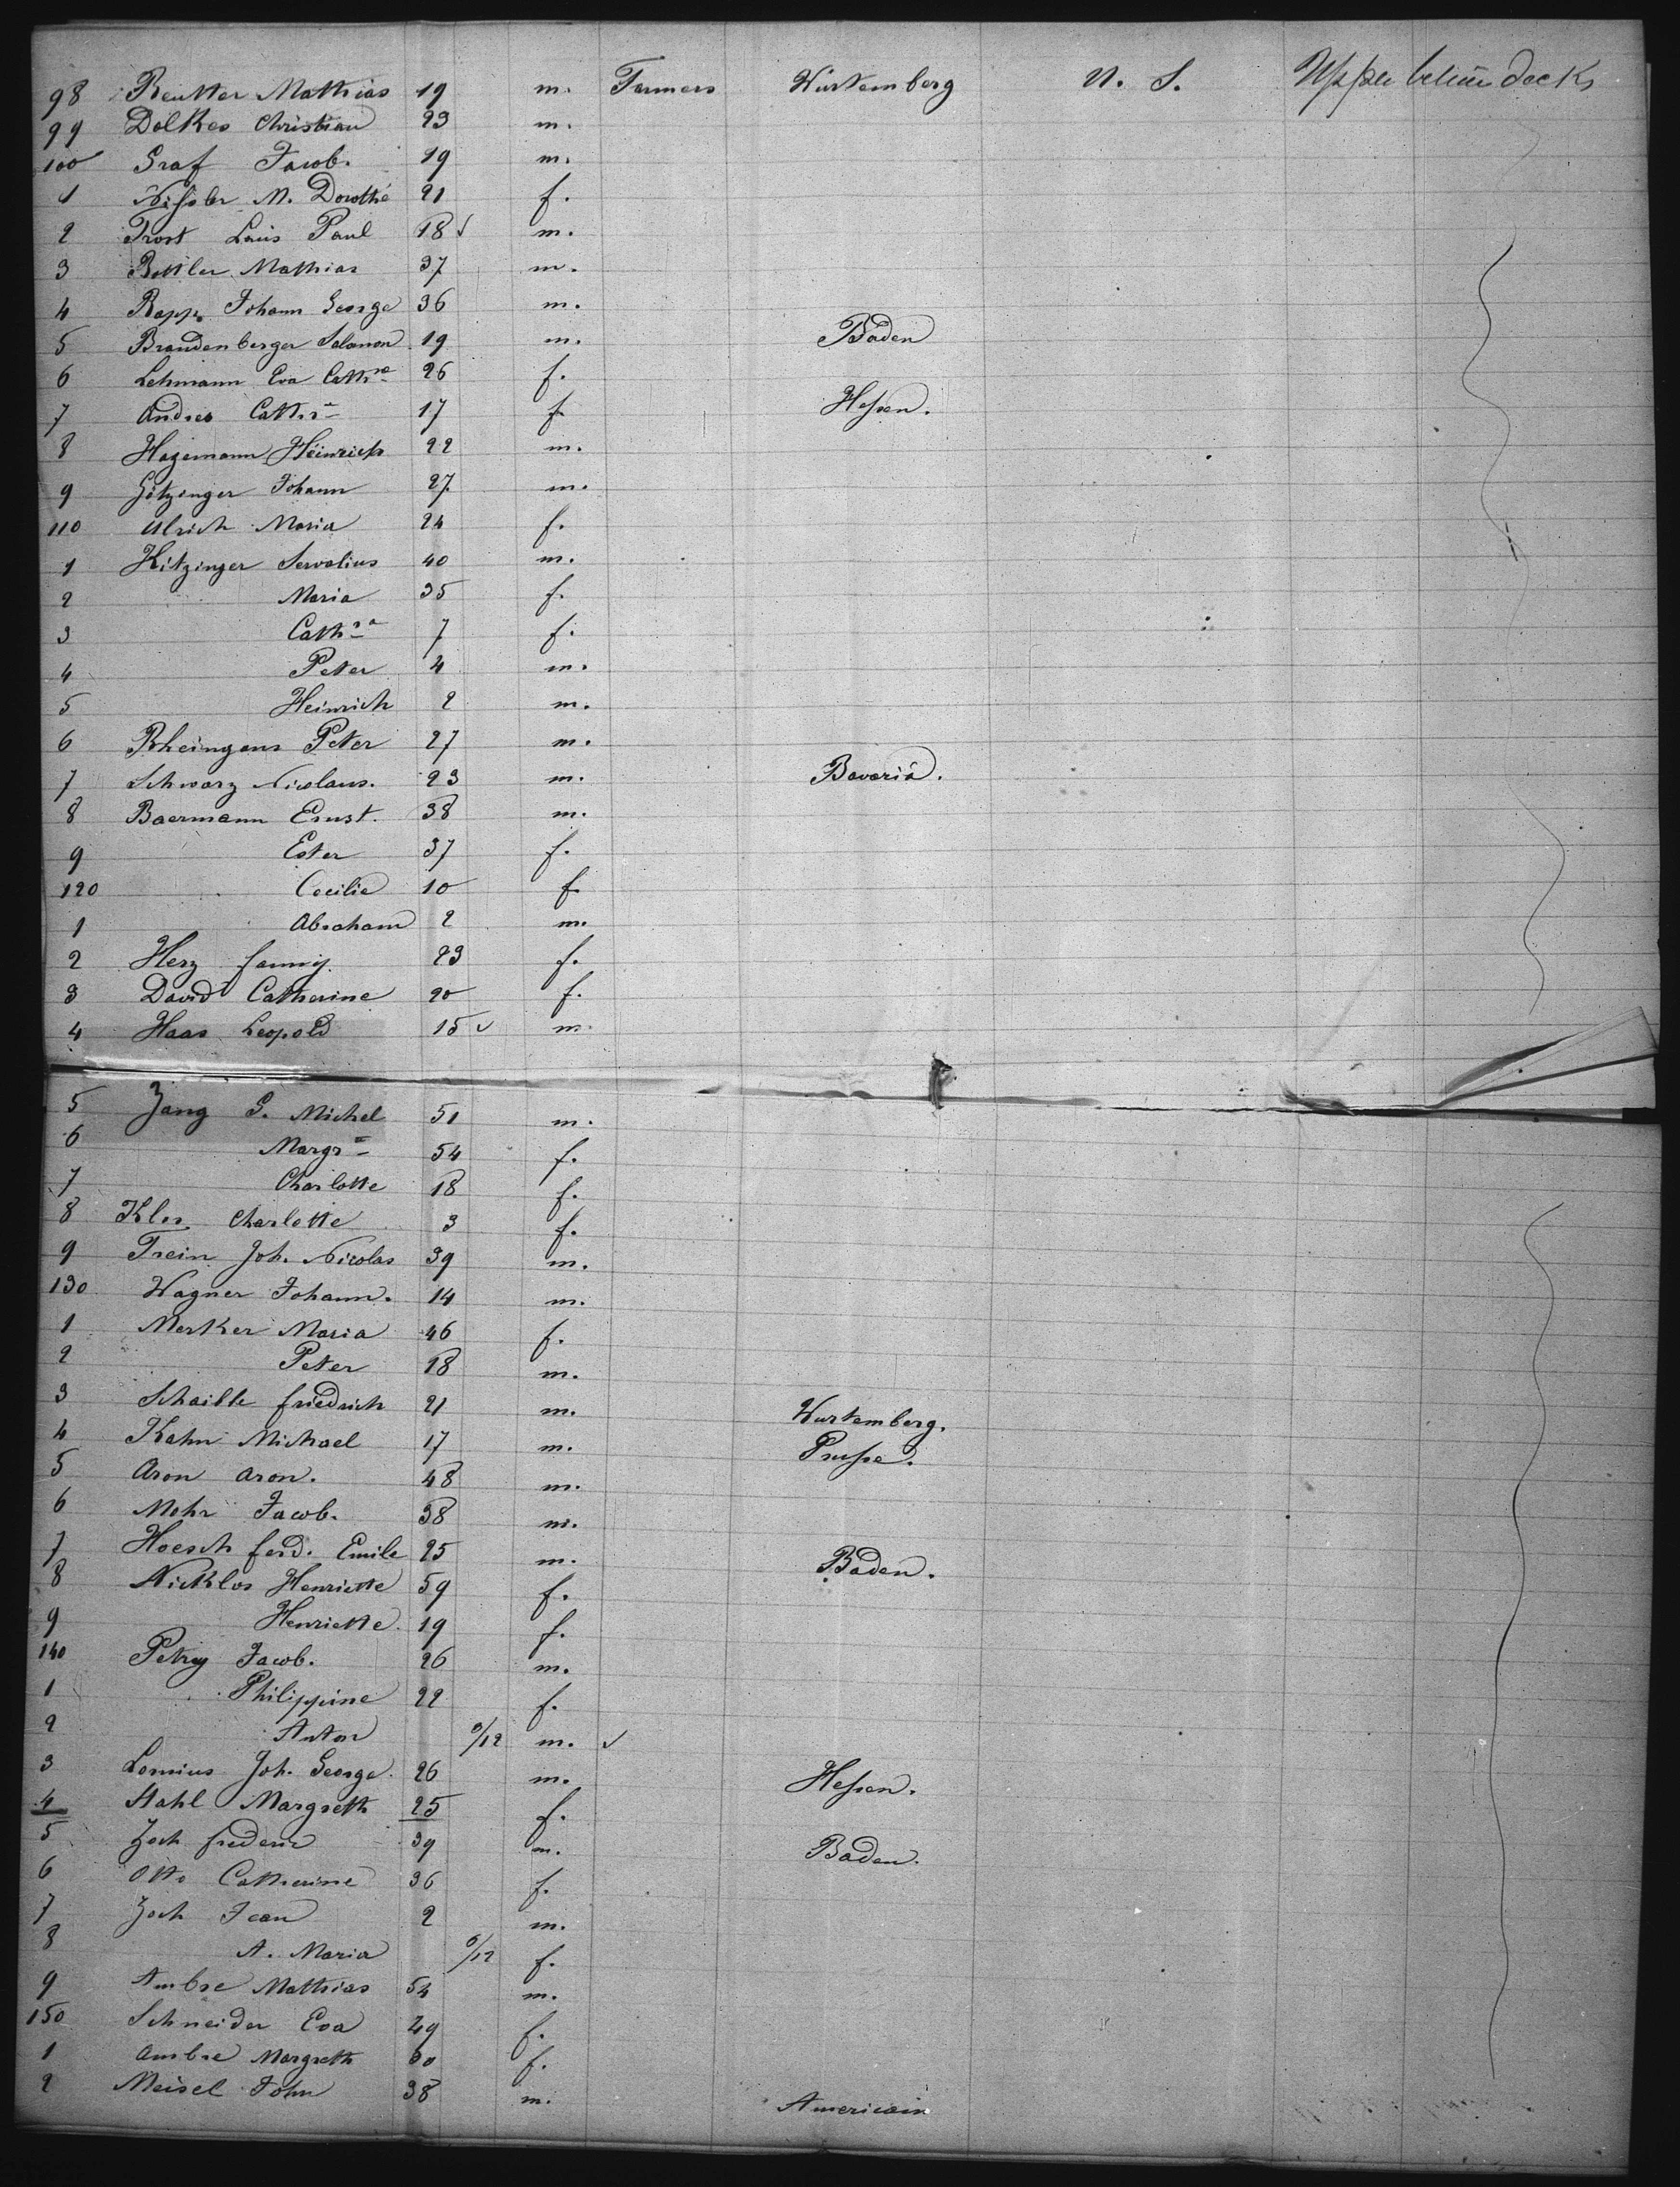 98 Reutter Mathias 19 m. Farmers Würtemberg U. S. Upper between decks
99 Dolkes Christian 23 m.
100 Graf Jacob. 19 m.
1 Nißler M. Dorothé 21 f.
2 Trost Louis Paul 18 m.
3 Bettler Mathias 37 m.
4 Rapp Johann George 36 m.
5 Brandenberger Salamon 19 m. Baden
6 Lehmann Eva Cathne 26 f.
7 Andres Cathr 17 f. Heßen.
8 Hagemann Heinrich 22 m.
9 Götzinger Johann 27 m.
110 Ulrich Maria 24 f.
1 Kitzinger Servatius 40 m.
2 Maria 35 f.
3 Cathna 7 f.
4 Peter 4 m.
5 Heinrich 2 m.
6 Rheingans Peter 27 m.
7 Schwarz Nicolaus. 23 m. Bavaria.
8 Baermann Ernst. 38 m.
9 Ester 37 f.
120 Cecilie 10 f.
1 Abraham 2 m.
2 Herz fanny 23 f.
3 David Catherine 20 f.
4 Haas Leopold 15 m.
5 Zang G. Michel 51 m.
6 Margr 54 f.
7 Charlotte 18 f.
8 Kler Charlotte 3 f.
9 Trein Joh. Nicolas 39 m.
130 Wagner Johann. 14 m.
1 Merker Maria 46 f.
2 Peter 18 m.
3 Schaible friedrich 21 m. Wurtemberg.
4 Kahn Michael 17 m. Pruße.
5 Aron Aron. 48 m.
6 Mohr Jacob. 38 m.
7 Hoesch ferd. Emile 25 m. Baden.
8 Nicklos Henriette 59 f.
9 Henriette. 19 f.
140 Petry Jacob. 26 m.
1 Philippine 22 f.
2 Anton /12 m.
3 Lomius Joh. George. 26 m. Heßen.
4 Stahl Margreth 25 f.
5 Zoch frederic 39 m. Baden.
6 Otto Catherine 36 f.
7 Zoch Jean 2 m.
8 A. Maria /12 f.
9 Ambre Mathias 54 m.
150 Schneider Eva 49 f.
1 Ambre Margreth 30 f.
2 Meisel John 38 m. Americain